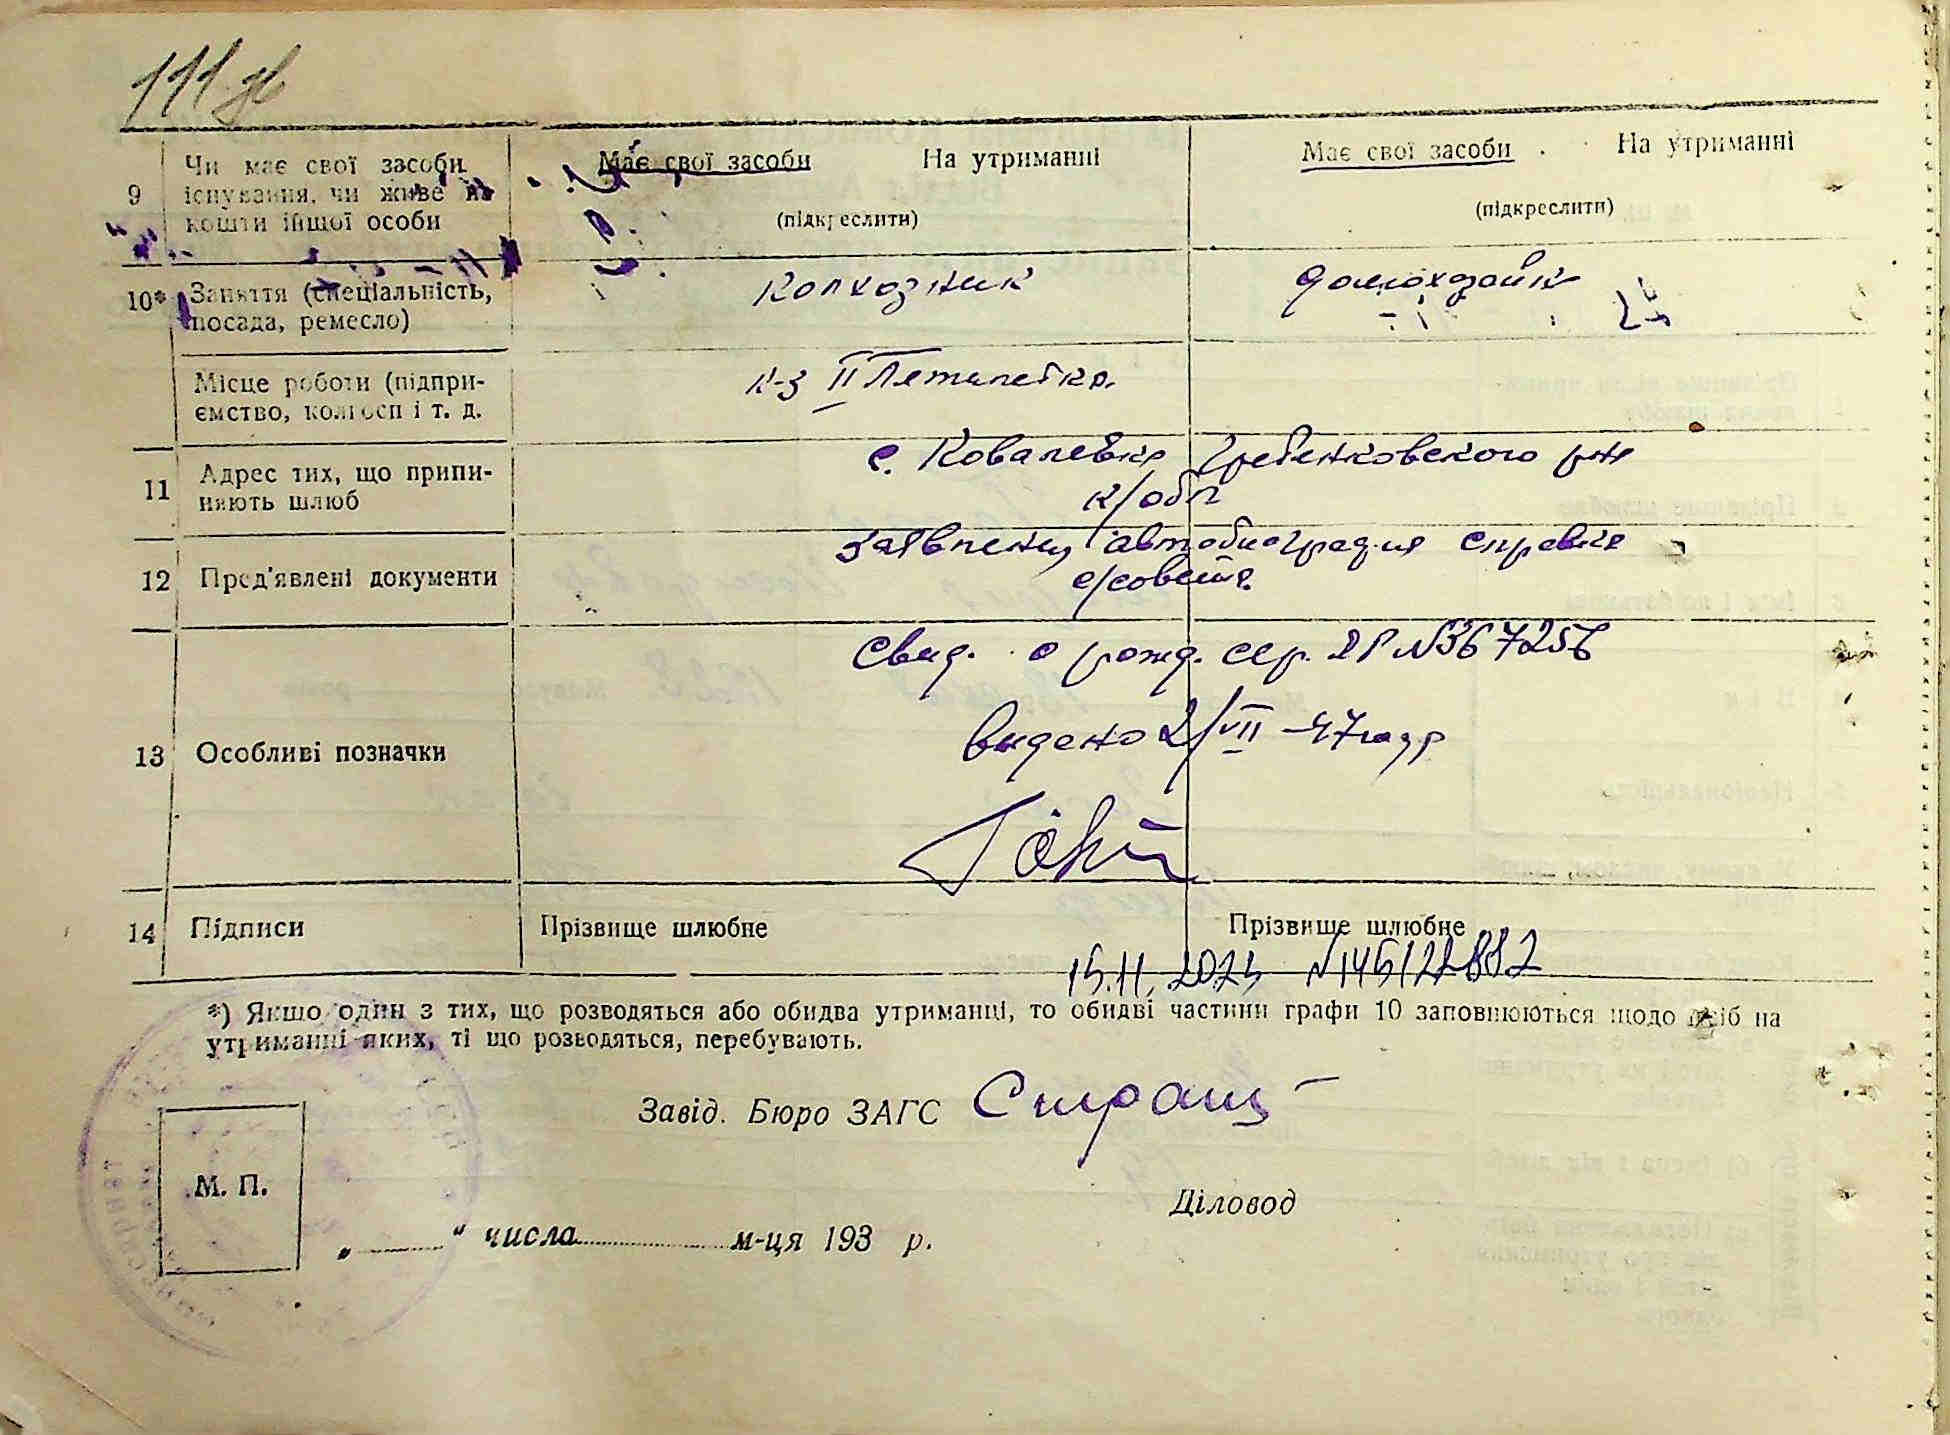 111 зв
Чи має свої засоби
9 існування, чи живе на
кошти іншої особи
Має свої засоби На утриманні
(підкреслити)
Має свої засоби На утриманні
(підкреслити)
10* Заняття (спеціальність,
посада, ремесло)
колхозник
домохозяйк
Місце роботи (підпри-
ємство, колгосп і т. д.
к-з II Пятилетка
11 Адрес тих, що припи-
няють шлюб
с. Ковалевка Гребенковского р-на
к/обл
12 Пред'явлені документи
Заявление, автобиография справка
с/совета
13 Особливі позначки
Свид. о рожд. сер. №367256
видено 2/VII -47 году
14 Підписи
Прізвище шлюбне
Прізвище шлюбне
15.11.2023 №145122882
*) Якшо один з тих, що розводяться або обидва утриманці, то обидві частини графи 10 заповнюються щодо осіб на
утриманні яких, ті що розводяться, перебувають.
Завід. Бюро ЗАГС
М. П.
Діловод
„ " числа м-ця 193 р.